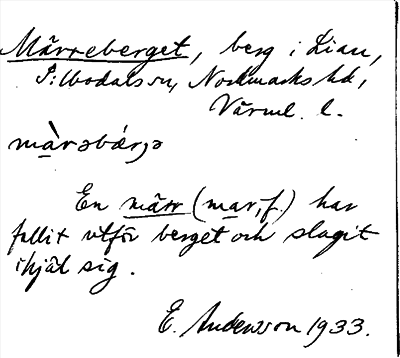 Märreberget, berg i Lian,
Silbodals sn, Nordmarks hd,
Värml. l.
màrəbǽrjə
En märr (mar, f.) har
fallit utför berget och slagit
ihjäl sig.
E. Andersson 1933.